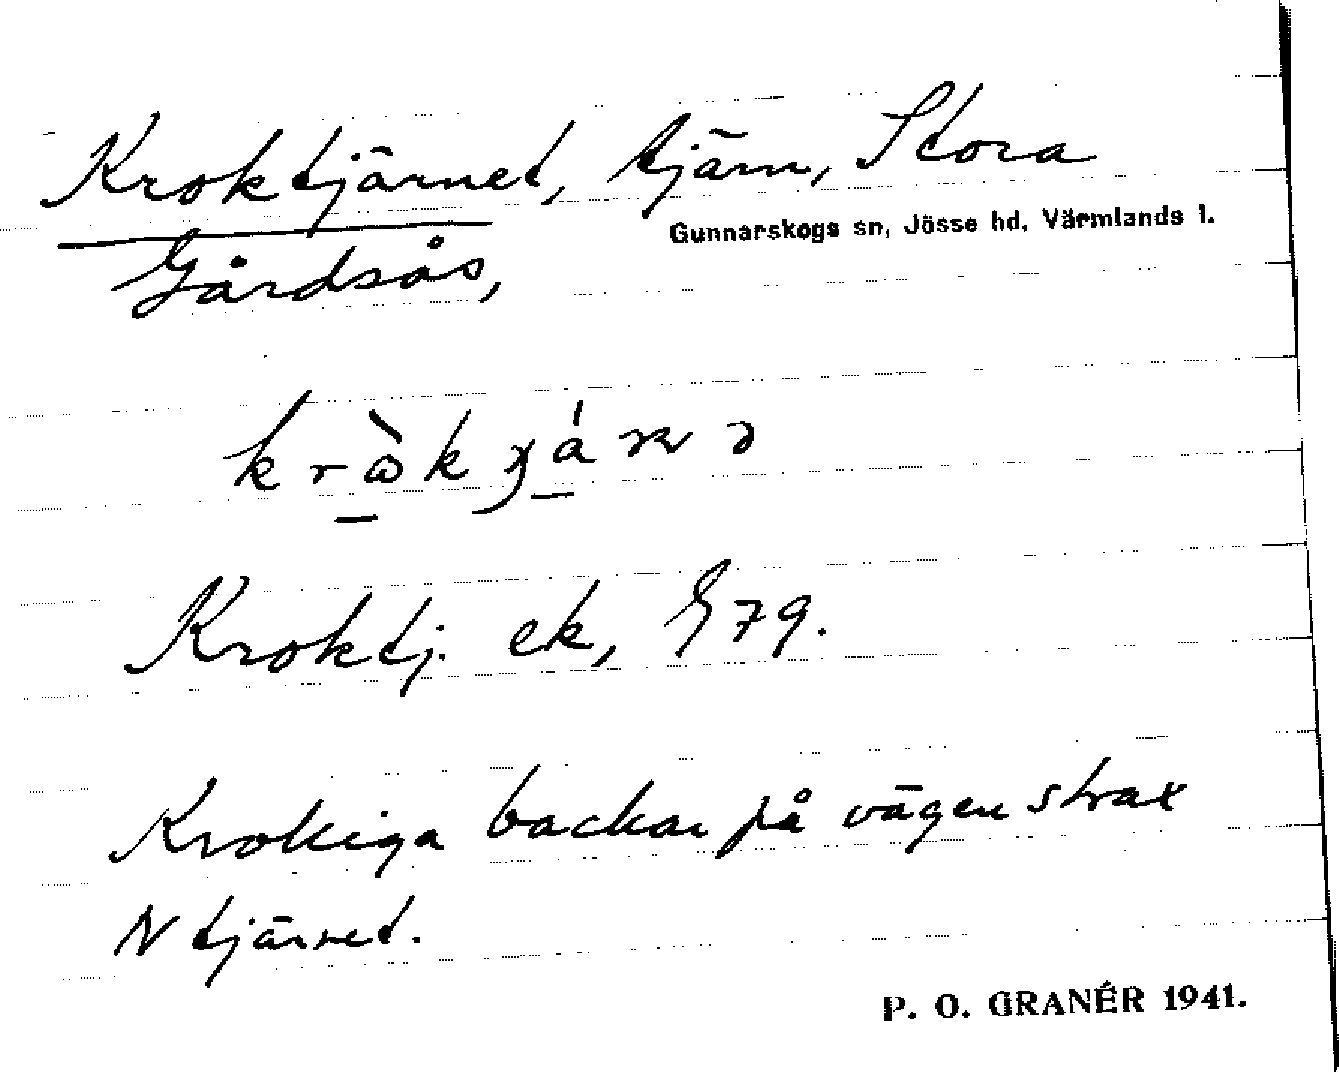 Kroktjärnet, tjärn, Stora
Gunnarskogs sn, Jösse hd, Värmlands l.
Gårdsås,
Kroktj. ek, G 79.
Krokiga backar på vägen strax
N tjärnet.
P. O. GRANÉR 1941.